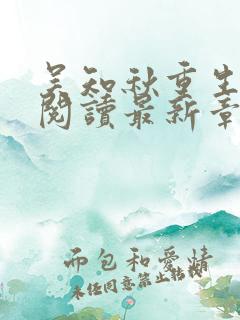 吴知秋重生
閱讀最新章
而包和愛情
未经同意禁止转载